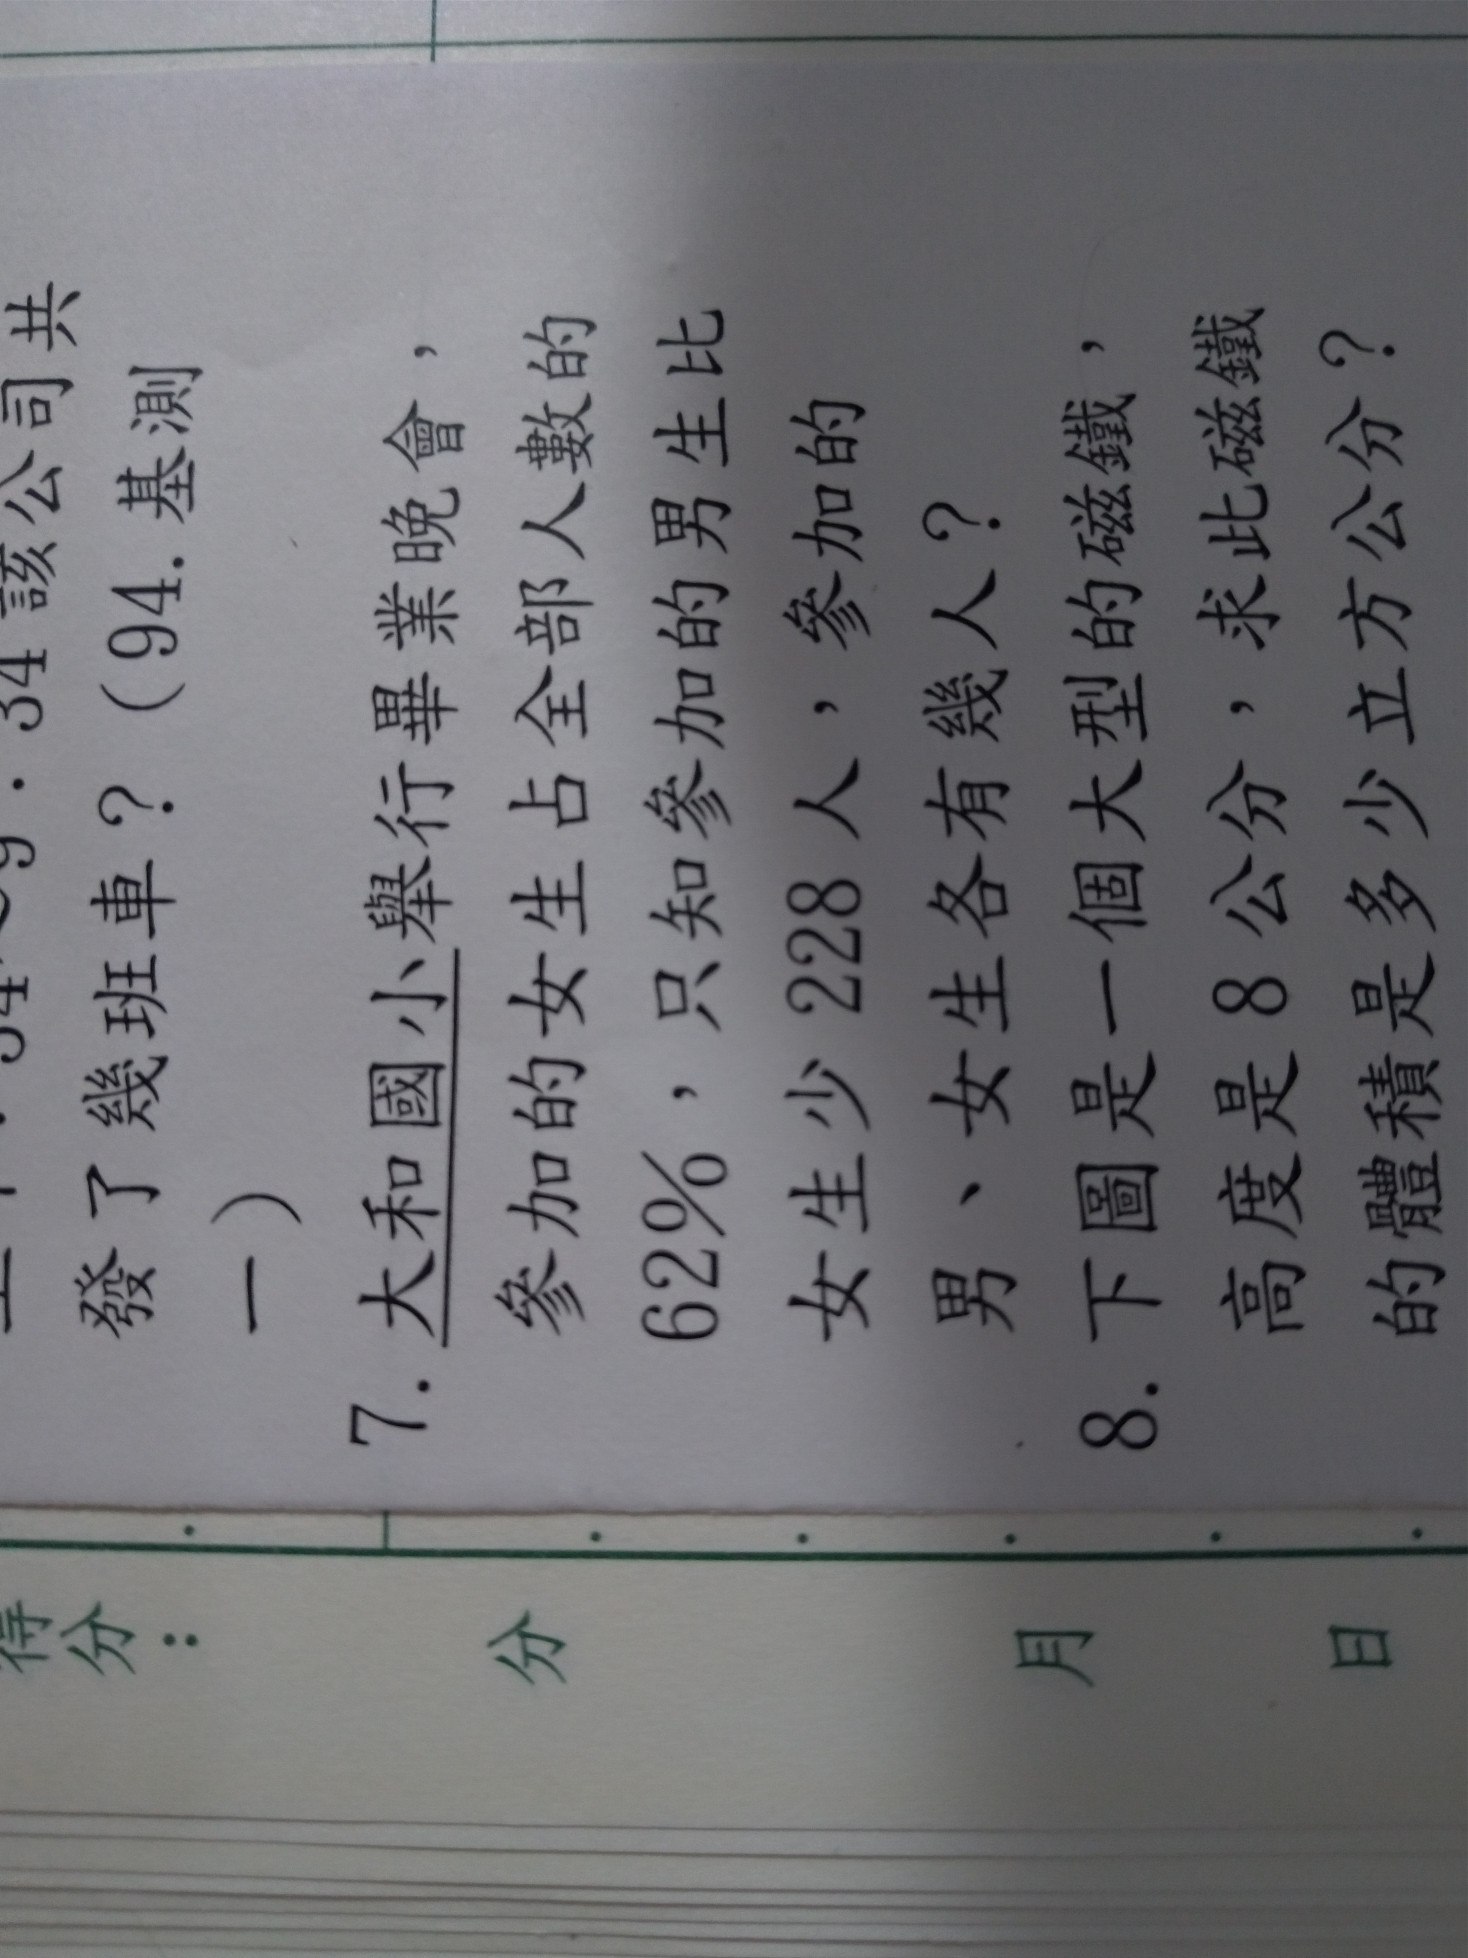 34 該公司共
發了幾班車？(94.基測
一)
7. 大和國小舉行畢業晚會，
參加的女生占全部人數的
62%，只知參加的男生比
女生少 228 人，參加的
男、女生各有幾人？
8. 下圖是一個大型的磁鐵，
高度是 8 公分，求此磁鐵
的體積是多少立方公分？
得分：
分
月
日